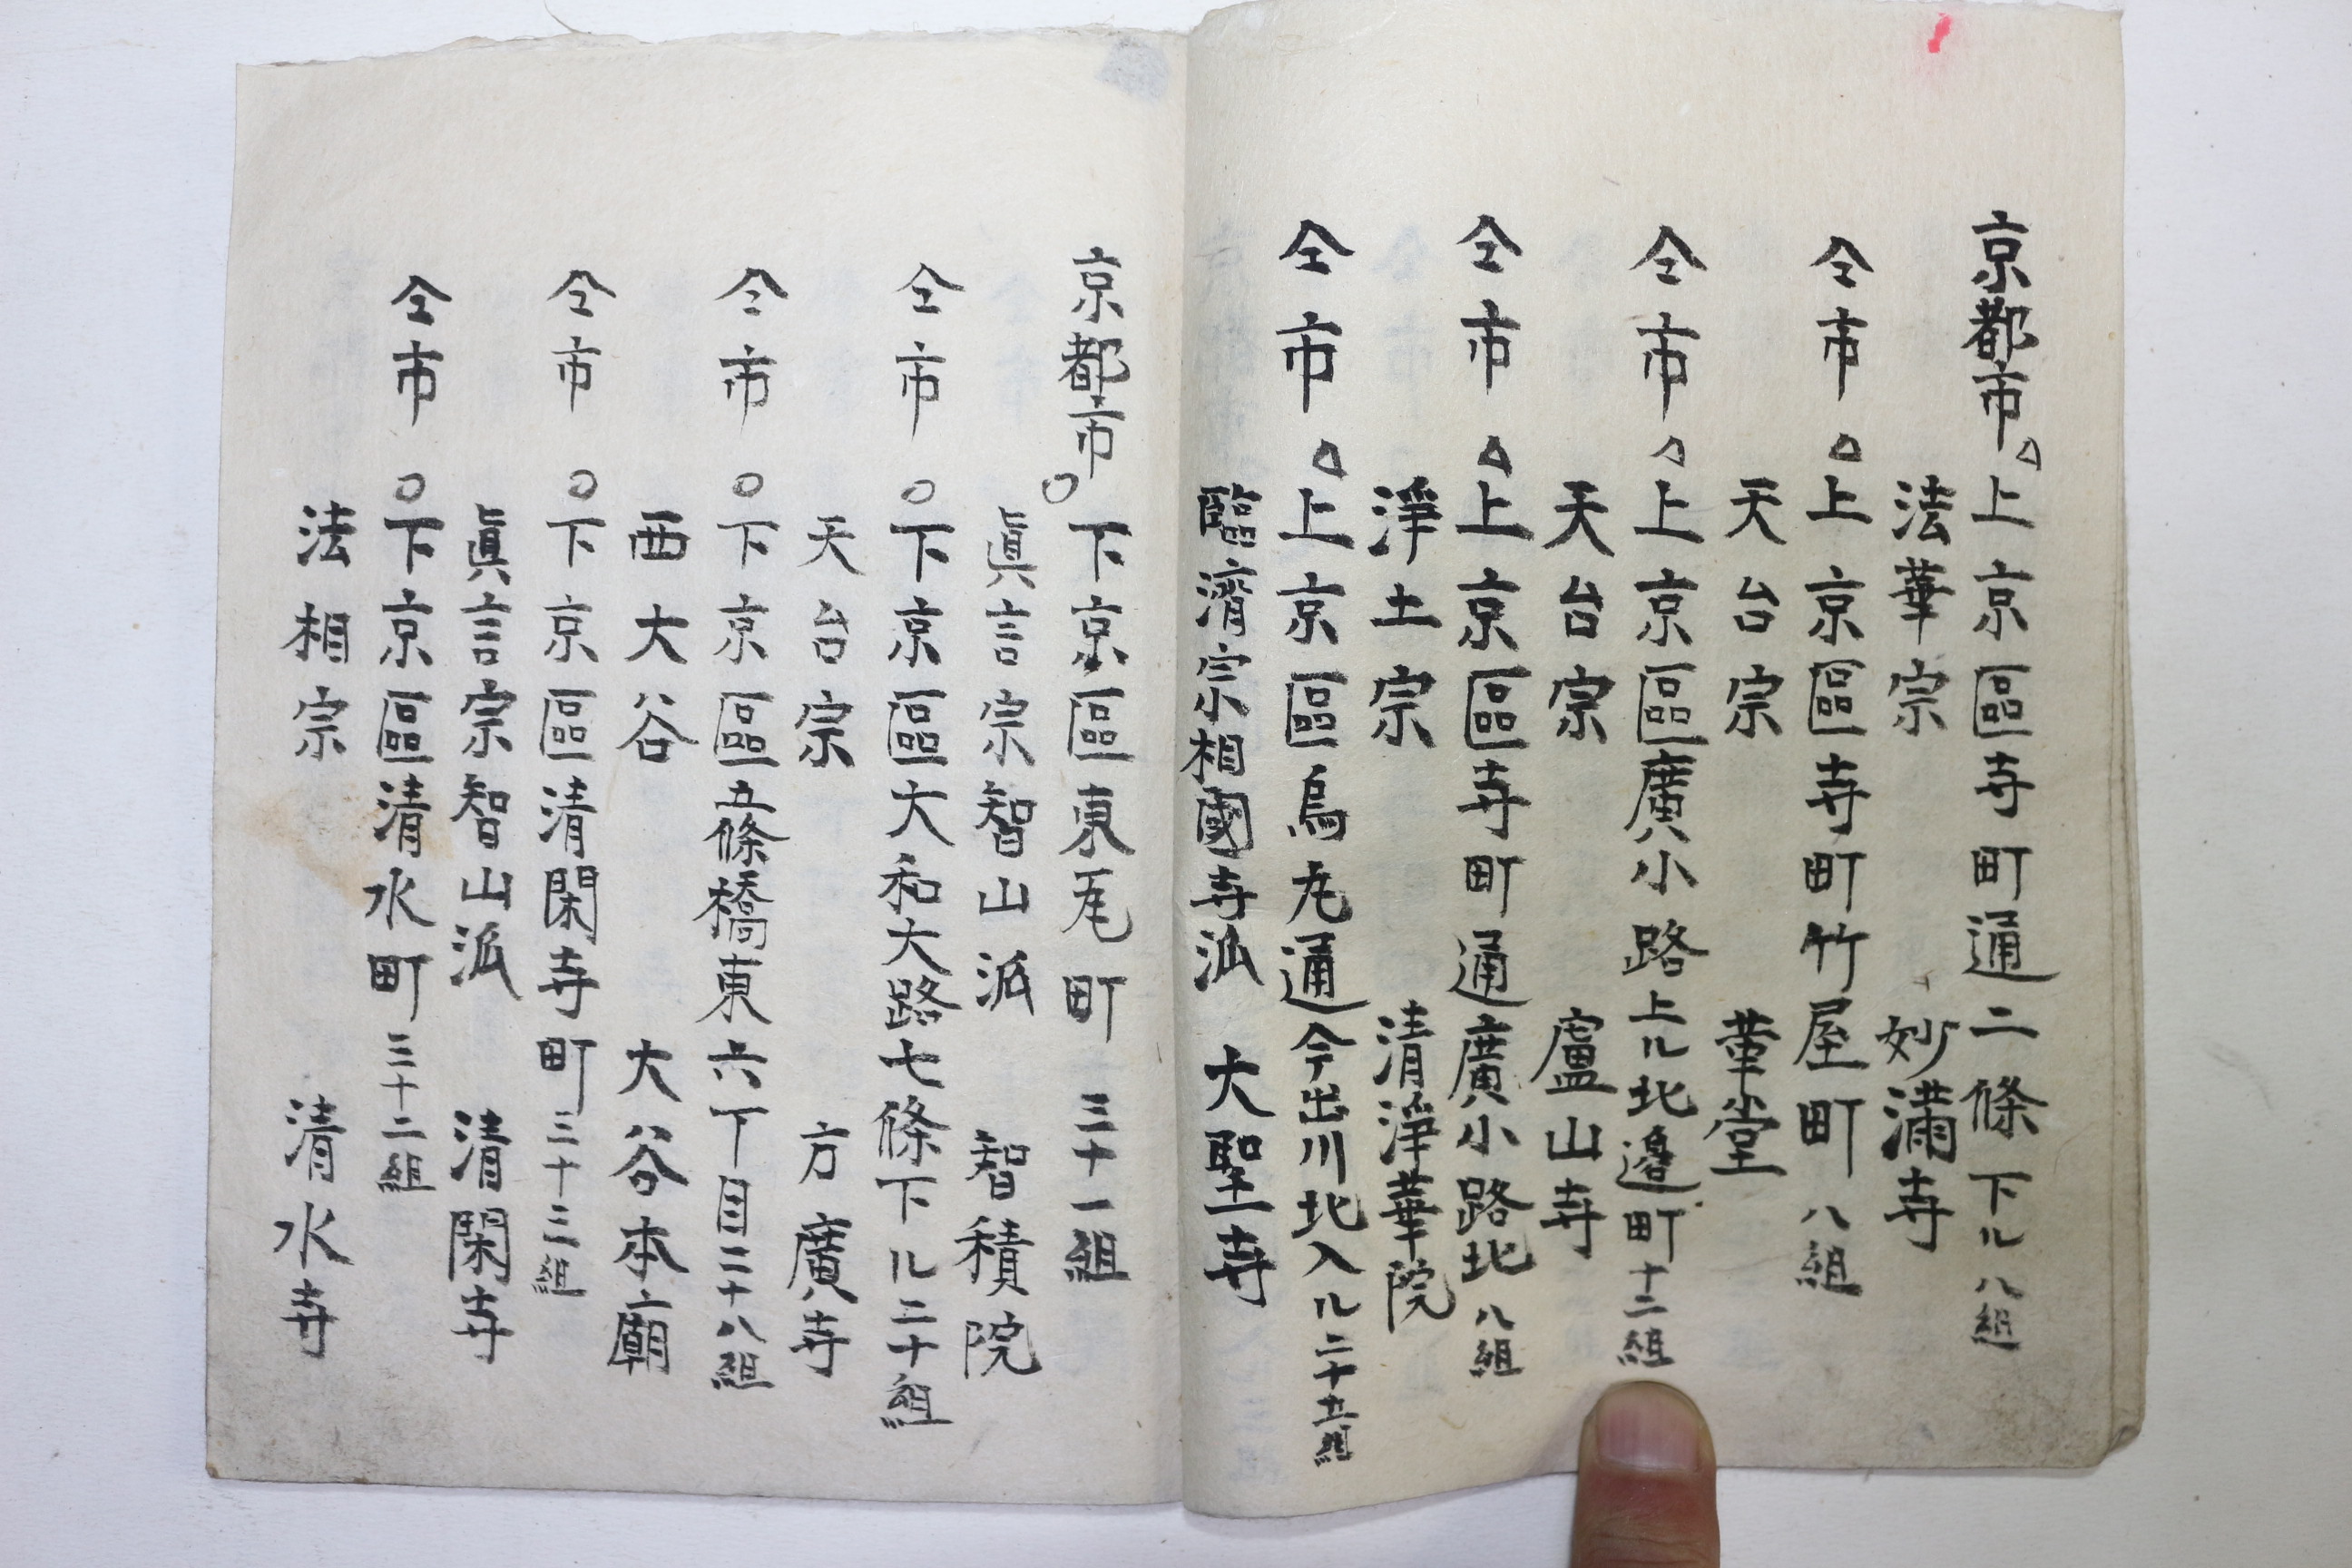 京都市△上京區寺町通二條下ル八組
法華宗 妙滿寺
仝市△上京區寺町竹屋町八組
天台宗 華堂
仝市△上京區廣小路上ル北邉町十二組
天台宗 盧山寺
仝市△上京區寺町通廣小路北八組
淨土宗 清淨華院
仝市△上京區烏丸通今出川北入ル二十五組
臨濟宗相國寺派 大聖寺
京都市○下京區東瓦町三十一組
眞言宗智山派 智積院
仝市○下京區大和大路七條下ル三十組
天台宗 方廣寺
仝市○下京區五條橋東六丁目二十八組
西大谷 大谷本廟
仝市○下京區清閑寺町三十三組
眞言宗智山派 清閑寺
仝市○下京區清水町三十二組
法相宗 清水寺